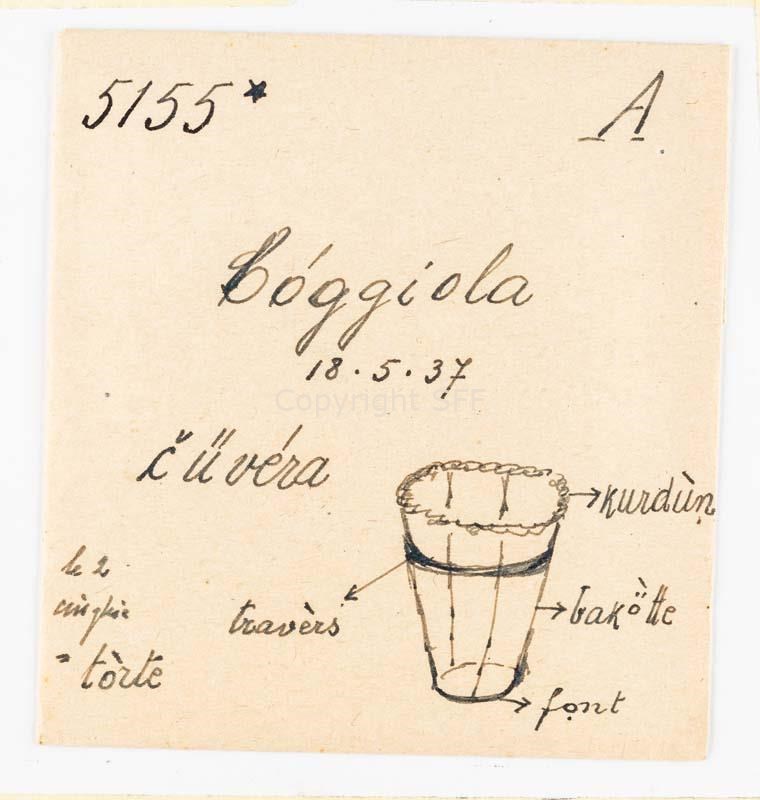 5155*
A
Cóggiola
18.5.37
Copyright SFF
čüvéra
kurdùṇ
le 2
cinghie
travèrs
bakö̀tte
= tòrte
fọnt